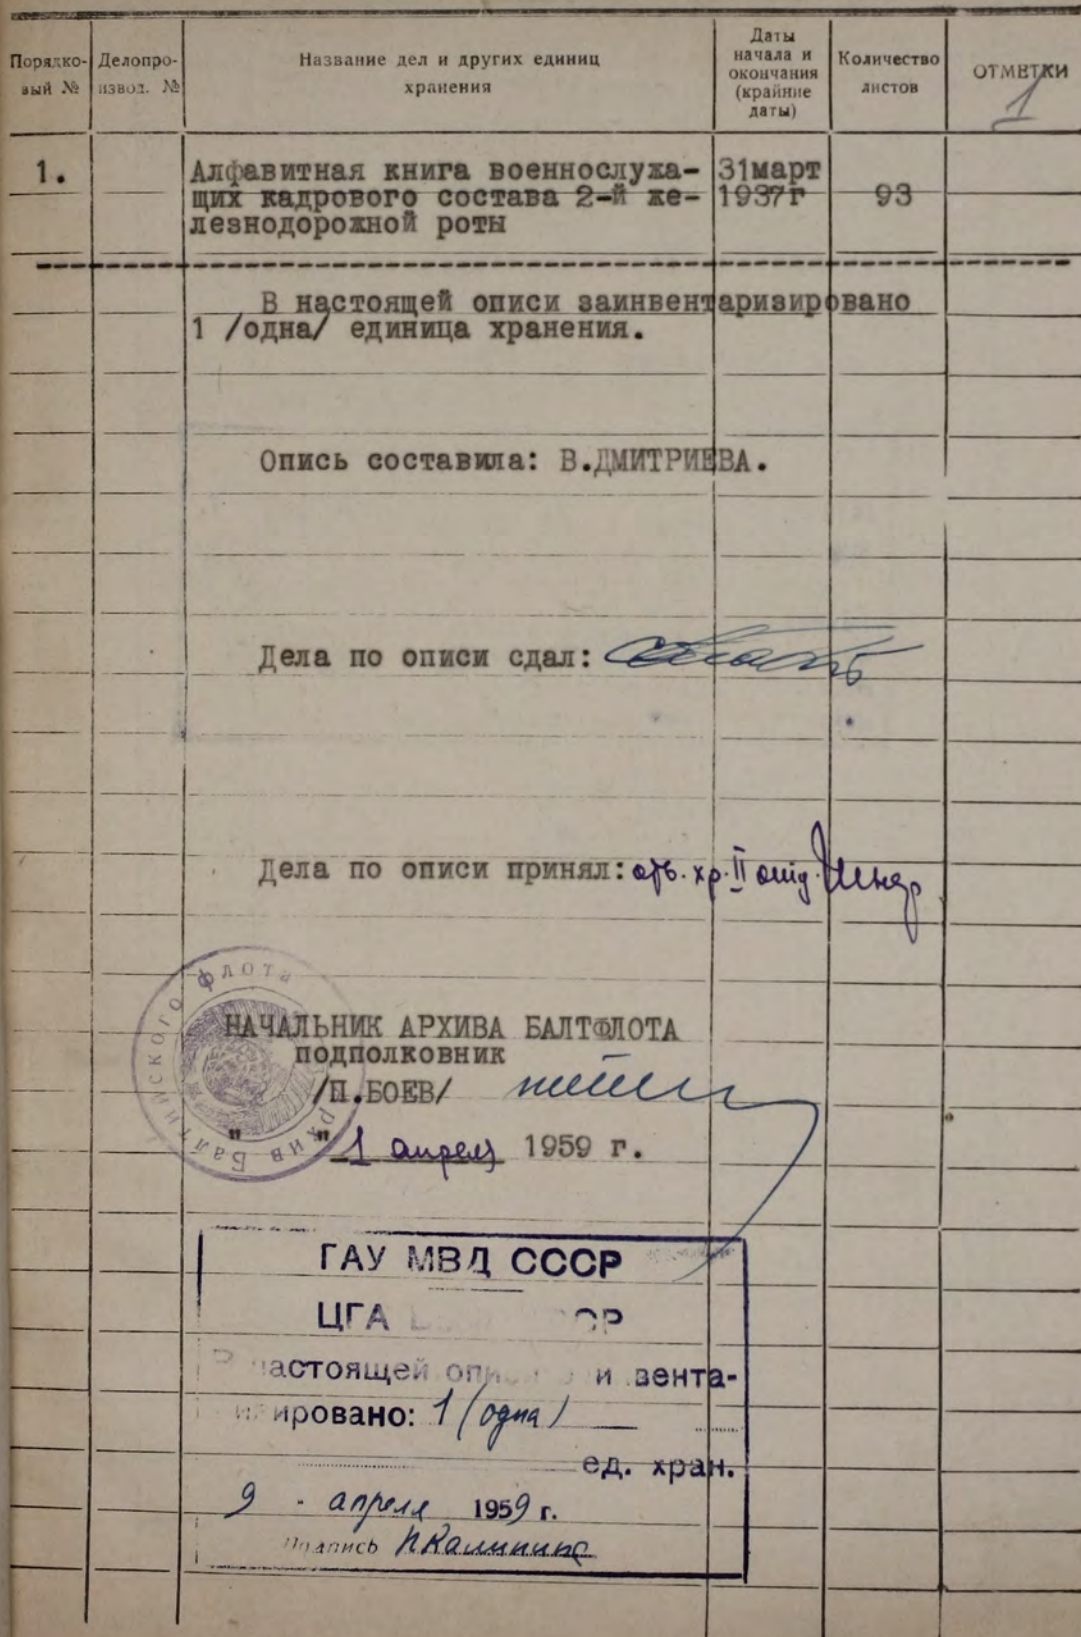 Порядко-
вый №
Делопро-
извод. №
Название дел и других единиц
хранения
Даты
начала и
окончания
(крайние
даты)
Количество
листов
ОТМЕТКИ
1
1.
Алфавитная книга военнослужа-
щих кадрового состава 2-й же-
лезнодорожной роты
31март
1937г
93
В настоящей описи заинвентаризировано
1 /одна/ единица хранения.
Опись составила: В.ДМИТРИЕВА.
Дела по описи сдал:
Дела по описи принял: отв. хр. II отд.
Архив Балтийского флота
НАЧАЛЬНИК АРХИВА БАЛТФЛОТА
ПОДПОЛКОВНИК
/П.БОЕВ/
" " 1 апреля 1959 г.
ГАУ МВД СССР
ЦГА
В настоящей описи вента-
ировано: 1 (одна)
ед. хран.
9 - апреля 1959 г.
Подпись НКалинина